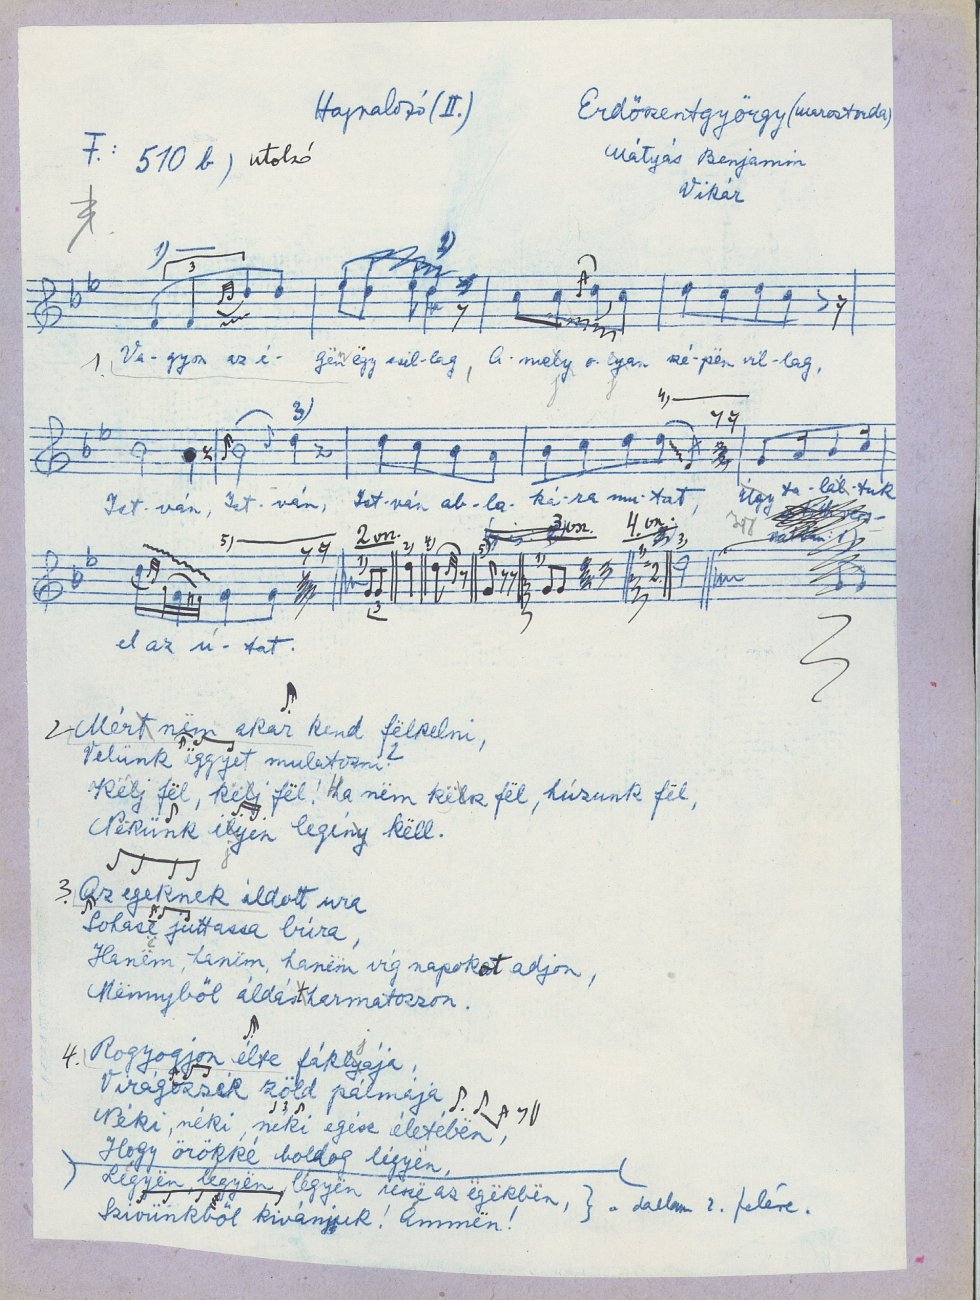 Hajnalozó (II.)
Erdőszentgyörgy (Marostorda)
F.: 510 b) utolsó
Mátyás Benjamin
Vikár
1) 3 2)
1. Va-gyon az é- gën ëgy csil-lag, A-mely o-lyan szé-pën vil-lag,
3) 4)
Ist-ván, Ist-ván, Ist-ván ab-la-ká-ra mu-tat, Úgy ta-lál-tuk
5) 2 vsz. 1) 2) 4) 5) 3 vsz. 1) 4. vsz. 1) 3)
3
el az ú-tat.
2. Mért nëm akar kend fëlkelni,
Velünk ëggyet mulatozni?
Këlj fël, këlj fël! Ha nëm këlsz fël, húzunk fël,
Nékünk ilyen legény këll.
3. Az egeknek áldott ura
Sohase juttassa búra,
Hanëm, hanëm, hanëm víg napokat adjon,
Mënnyből áldást harmatozzon.
4. Rogyogjon élte fáklyája,
Virágozzék zöld pálmája
Néki, néki, néki egész életébën,
Hogy örökké boldog légyën,
Légyën, légyën, légyën része az égëkbën,
Szivünkből kivánjuk! Ámmën!
} a dallam 2. felére.